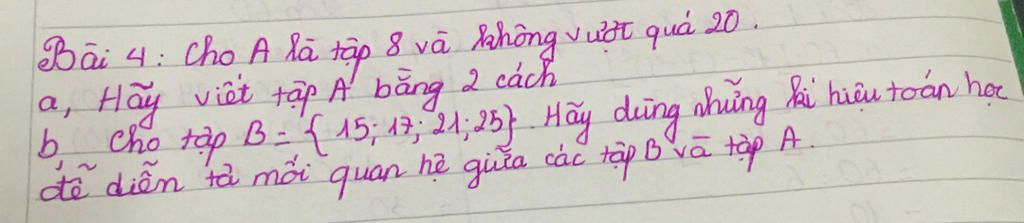 Bài 4: Cho A là tập 8 và không vượt quá 20.
a, Hãy viết tập A bằng 2 cách
b, Cho tập B = {15; 17; 21; 25}. Hãy dùng những kí hiệu toán học
để diễn tả mối quan hệ giữa các tập B và tập A.